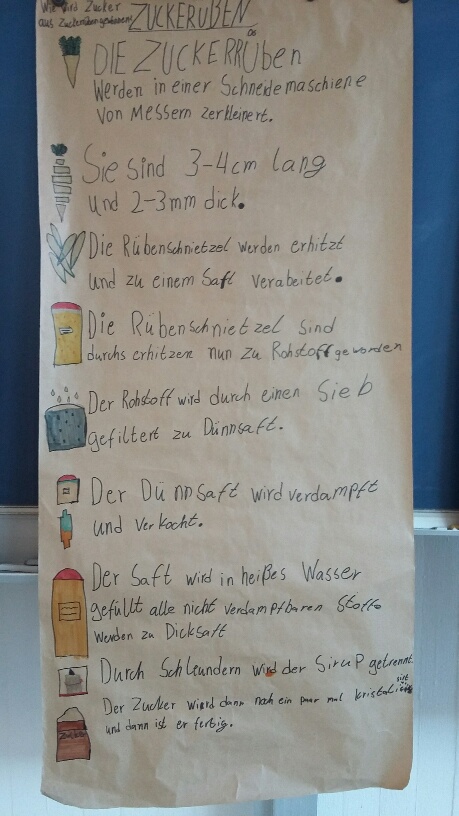 Wie wird Zucker
aus Zuckerrüben gewonnen?
ZUCKERÜBEN
DIE ZUCKERRÜben
Werden in einer Schneidemaschiene
Von Messern zerkleinert.
Sie sind 3-4cm lang
und 2-3mm dick.
Die Rübenschnietzel werden erhitzt
und zu einem Saft verabeitet.
Die Rübenschnietzel sind
durchs erhitzen nun zu Rohstoff geworden
Der Rohstoff wird durch einen Sieb
gefiltert zu Dünnsaft.
Der Dünnsaft wird verdampft
und verkocht.
Der Saft wird in heißes Wasser
gefüllt alle nicht verdampfbaren Stoffe
Werden zu Dicksaft
Durch Schleundern wird der Sirup getrennt.
Der Zucker wird dann noch ein paar mal
und dann ist er fertig.
Zucker